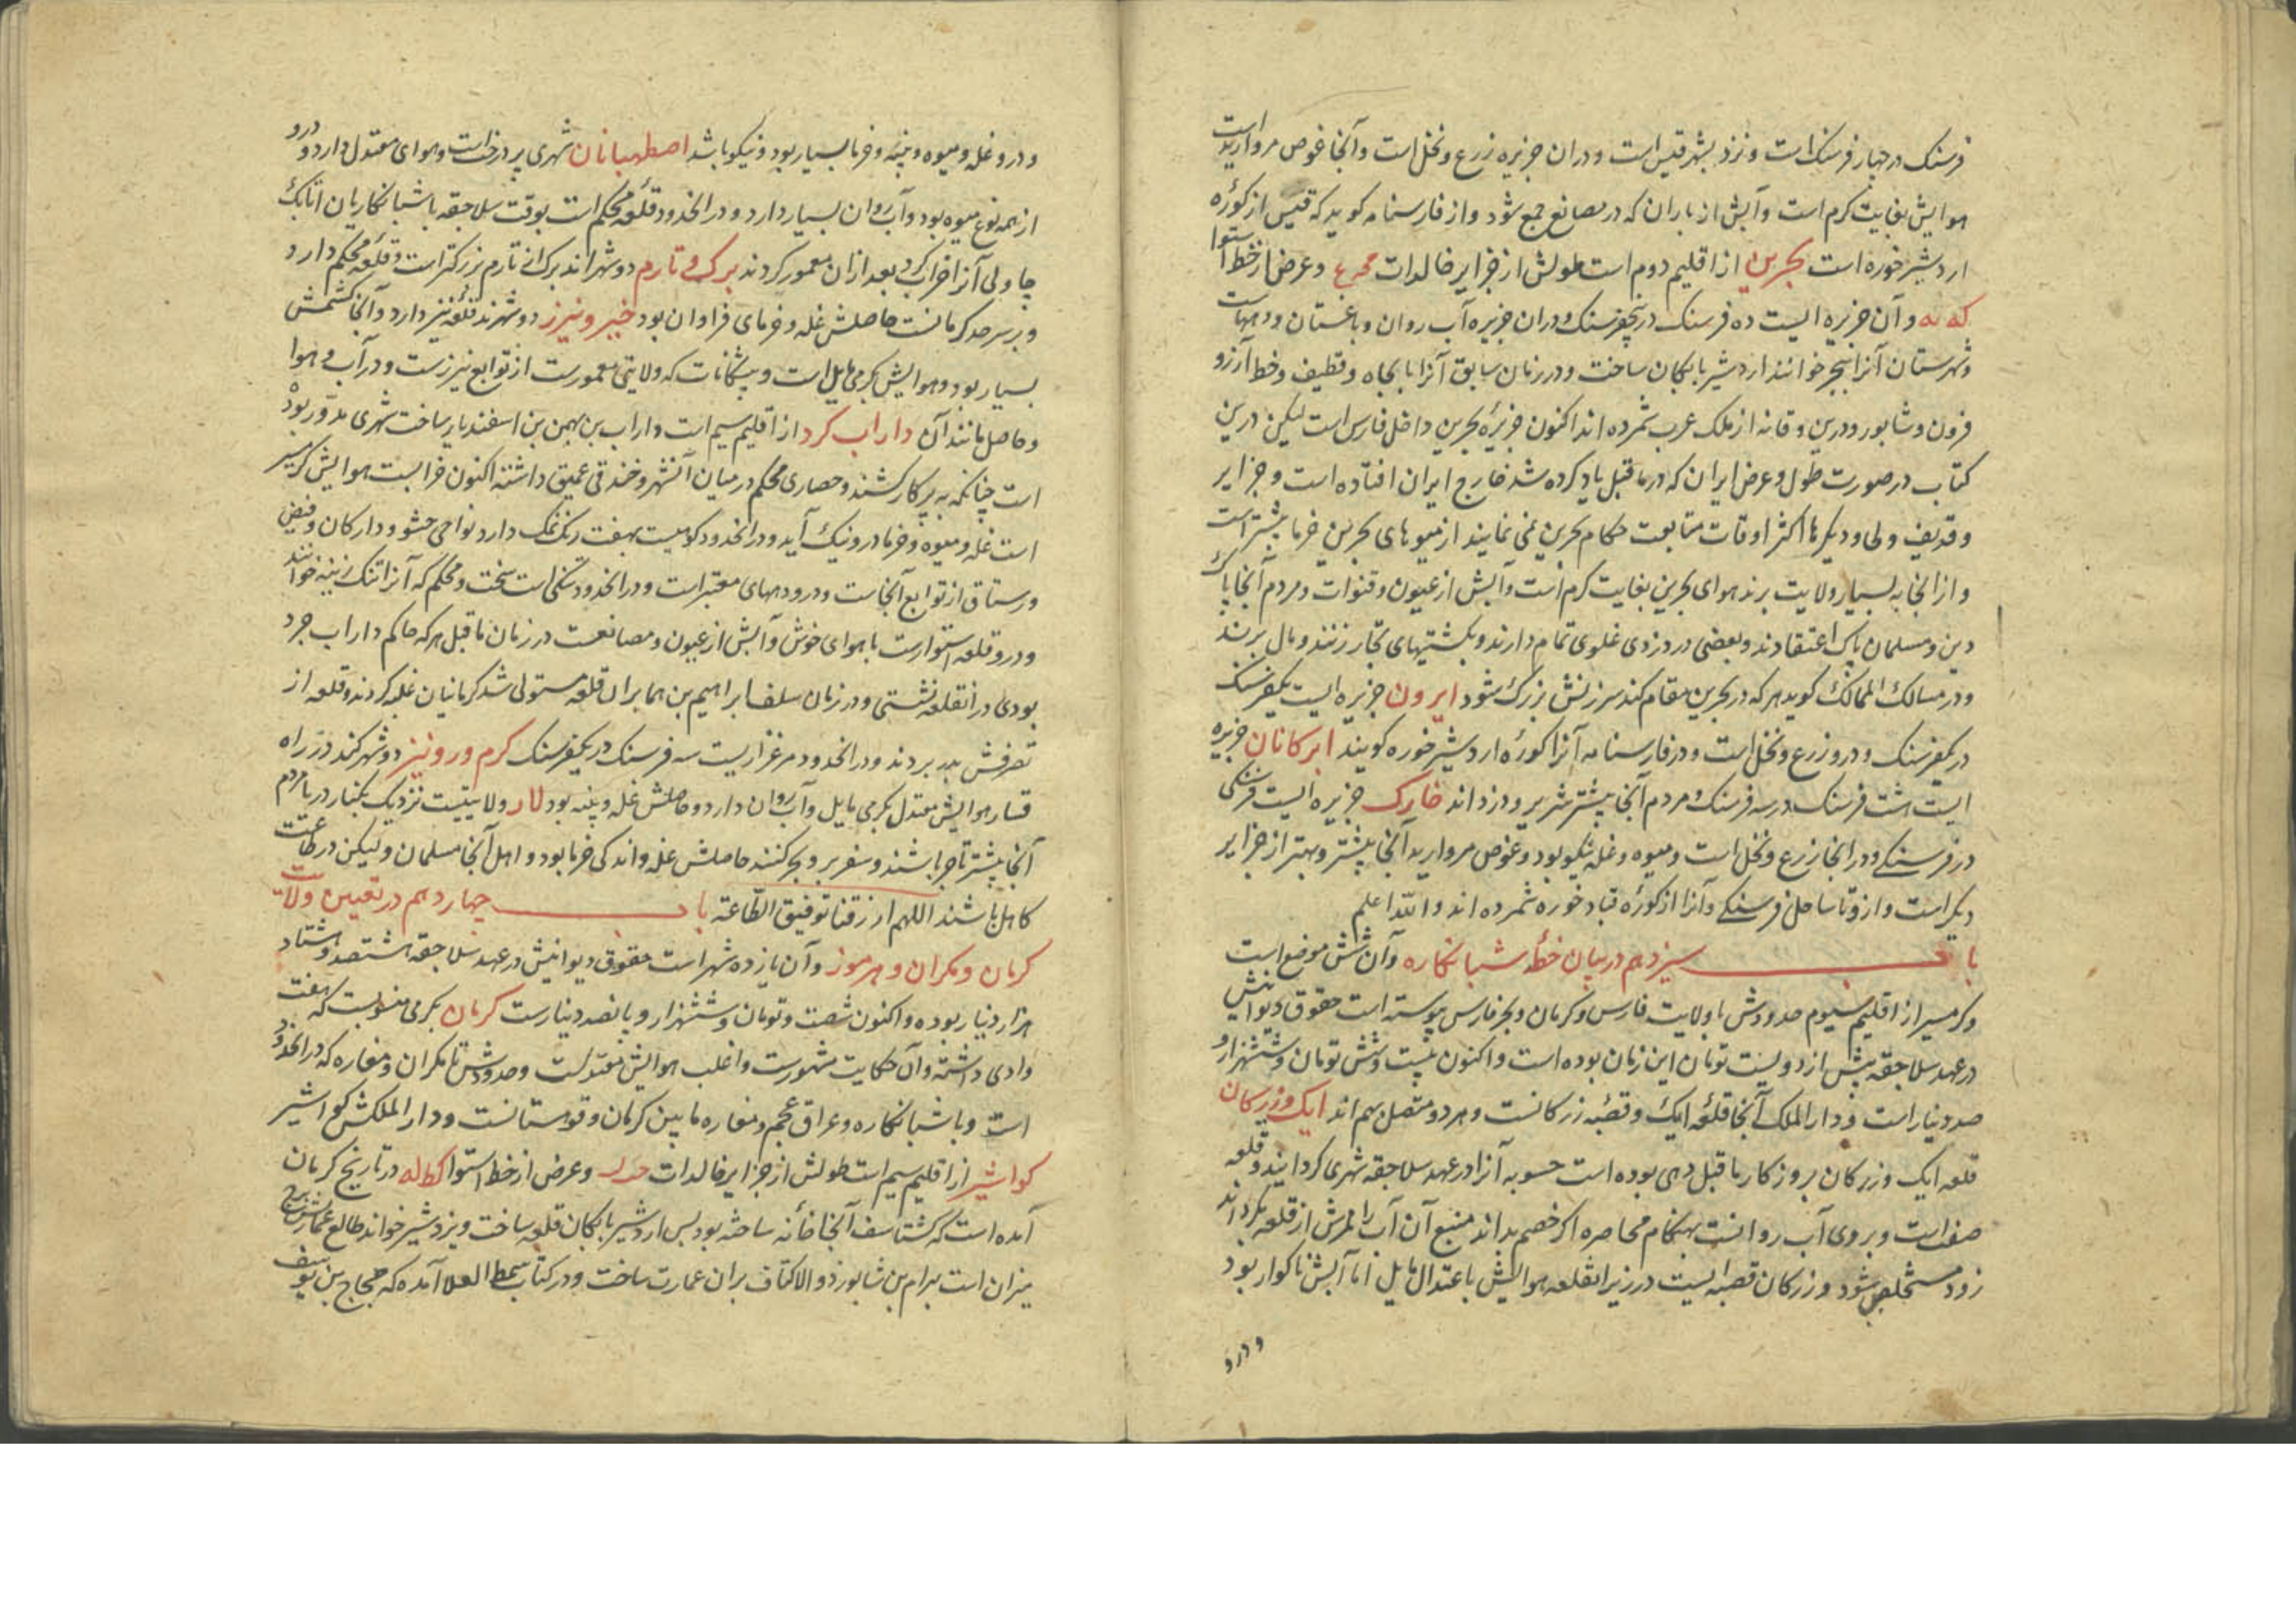 فرسنک در چهار فرسنک است و نزد بشهر قیس است و در ان جزیره زرع و نخل است و آنجا غوص مروارید است
هوایش بغایت کرم است و آبش از باران که در مصانع جمع شود و از فارسنامه کوید که قیس از کورهٔ
اردشیر خوره است بحرین از اقلیم دوم است طولش از جزایر خالدات و عرض از خط استوا
که نه و آن جزیره ایست ده فرسنک در پنجفرسنک و در ان جزیره آب روان و باغستان و دیهاست
و شهرستان آنرا هجر خوانند اردشیر بابکان ساخت و در زمان سابق آنرا با بجاه و قطیف و خط و آرزو
فرون و شابور و درین و قانه از ملک عرب شمرده اند اکنون جزیرهٔ بحرین داخل فارس است لیکن درین
کتاب در صورت طول و عرض ایران که در ماقبل یاد کرده شد خارج ایران افتاده است و جزایر
و قدیف ولی و دیکرها اکثر اوقات متابعت حکام بحرین نمی نمایند از میوهای بحرین خرما بیشتر است
و از انجا به بسیار ولایت برند هوای بحرین بغایت کرم است و آبش از عیون و قنوات و مردم آنجا پاک
دین و مسلمان پاک اعتقادند و بعضی در دزدی غلوی تمام دارند و بکشتیهای تجار زنند و مال برند
و در مسالک الممالک کوید هر که در بحرین مقام کند سرزنش بزرک شود ابرون جزیره ایست یکفرسنک
در یکفرسنک و درو زرع و نخل است و در فارسنامه آنرا کورهٔ اردشیر خوره کویند ابرکانان جزیره
ایست هشت فرسنک در سه فرسنک و مردم آنجا بیشتر شریر و دزد اند خارک جزیره ایست فرسنکی
در فرسنکی و در انجا زرع و نخل است و میوه و غله نیکو بود و غوص مروارید آنجا بیشتر و بهتر از جزایر
دیکر است و از و تا ساحل فرسنکی و آنرا از کورهٔ قباد خوره شمرده اند والله اعلم
باب سیزدهم در بیان خطهٔ شبانکاره و آن شش موضع است
و کرمسیر از اقلیم سیوم حدودش با ولایت فارس و کرمان و بحر فارس پیوسته است حقوق دیوانیش
در عهد سلاجقه بیش از دویست تومان این زمان بوده است و اکنون بیست و شش تومان و ششهزار و
صد دینار است و دار الملک آنجا قلعهٔ ایک و قصبهٔ زرکانست و هر دو متصل بهم اند ایک و زرکان
قلعه ایک و زرکان بروزکار ماقبل دهی بوده است حسویه آنرا در عهد سلاجقه شهری کردانید و قلعه
صفتست و بروی آب روانست بهنکام محاصره اکر خصم بداند منبع آن آب را ممرش از قلعه بکرداند
زود مستخلص شود و زرکان قصبه ایست در زیر انقلعه هوایش باعتدال مایل اما آبش ناکوار بود
و درو
و درو غله و میوه و پنبه و خرما بسیار بود و نیکو باشد اصطهبانان شهری پر درخت است و هوای معتدل دارد و درو
از همه نوع میوه بود و آب روان بسیار دارد و در انحدود قلعهٔ محکم است بوقت سلاجقه با شبانکاریان اتابک
چاولی آنرا خراب کرد بعد از ان معمور کردند برک و تارم دو شهر اند برک از تارم بزرکتر است و قلعهٔ محکم دارد
و بر سر حد کرمانست حاصلش غله و خرمای فراوان بود خیر و نیرز دو شهرند قلعه نیز دارد و آنجا کشمش
بسیار بود و هوایش بکرمی مایل است و بیشکانات که ولایتی معمورست از توابع نیرزست و در آب و هوا
و حاصل مانند آن داراب کرد از اقلیم سیم است داراب بن بهمن بن اسفندیار ساخت شهری مدور بوده
است چنانکه به پرکار کشند و حصاری محکم در میان آنشهر و خندقی عمیق داشته اکنون خرابست هوایش کرمسیر
است غله و میوه و خرما درو نیک آید و در انحدود کوهیست بهفت رنک نمک دارد نواحی حشو و دارکان و فیض
و رستاق از توابع آنجاست و درو دیههای معتبر است و در انحدود تنکی است سخت و محکم که آنرا تنک زینه خوانند
و درو قلعه استوارست با هوای خوش و آبش از عیون و مصانعست در زمان ماقبل هر که حاکم داراب جرد
بودی در انقلعه نشستی و در زمان سلف ابراهیم بن هما بران قلعه مستولی شد کرمانیان غلبه کردند و قلعه از
تصرفش بدر بردند و در انحدود مرغزاریست سه فرسنک در یکفرسنک کرم و رونیز دو شهرکند در راه
فسا هوایش معتدل بکرمی مایل و آب روان دارد و حاصلش غله و پنبه بود لار ولایتیست نزدیک بکنار دریا مردم
آنجا بیشتر تاجر باشند و سفر بر و بحر کنند حاصلش غله و اندکی خرما بود و اهل آنجا مسلمان و لیکن در طاعت
کاهل باشند اللهم ارزقنا توفیق الطاعة باب چهاردهم در تعیین ولایت
کرمان و مکران و هرموز و آن یازده شهر است حقوق دیوانیش در عهد سلاجقه هشتصد و هشتاد
هزار دینار بوده و اکنون شصت و تومان و ششهزار و پانصد دینارست کرمان بکرمی منسوبست که هفت
وادی داشته و آن حکایت مشهورست و اغلب هوایش معتدلست و حدودش تا مکران و مفاره که در انحدود
است و با شبانکاره و عراق عجم و مفاره مابین کرمان و قوهستانست و دار الملکش کواشیر
کواشیر از اقلیم سیم است طولش از جزایر خالدات و عرض از خط استوا در تاریخ کرمان
آمده است که کشتاسف آنجا خانه ساخته بود پس اردشیر بابکان قلعه ساخت و بزدشیر خواند طالع عمارتش برج
میزان است بهرام بن شابور ذوالاکتاف بران عمارت ساخت و در کتاب سمط العلا آمده که حجاج بن یوسف